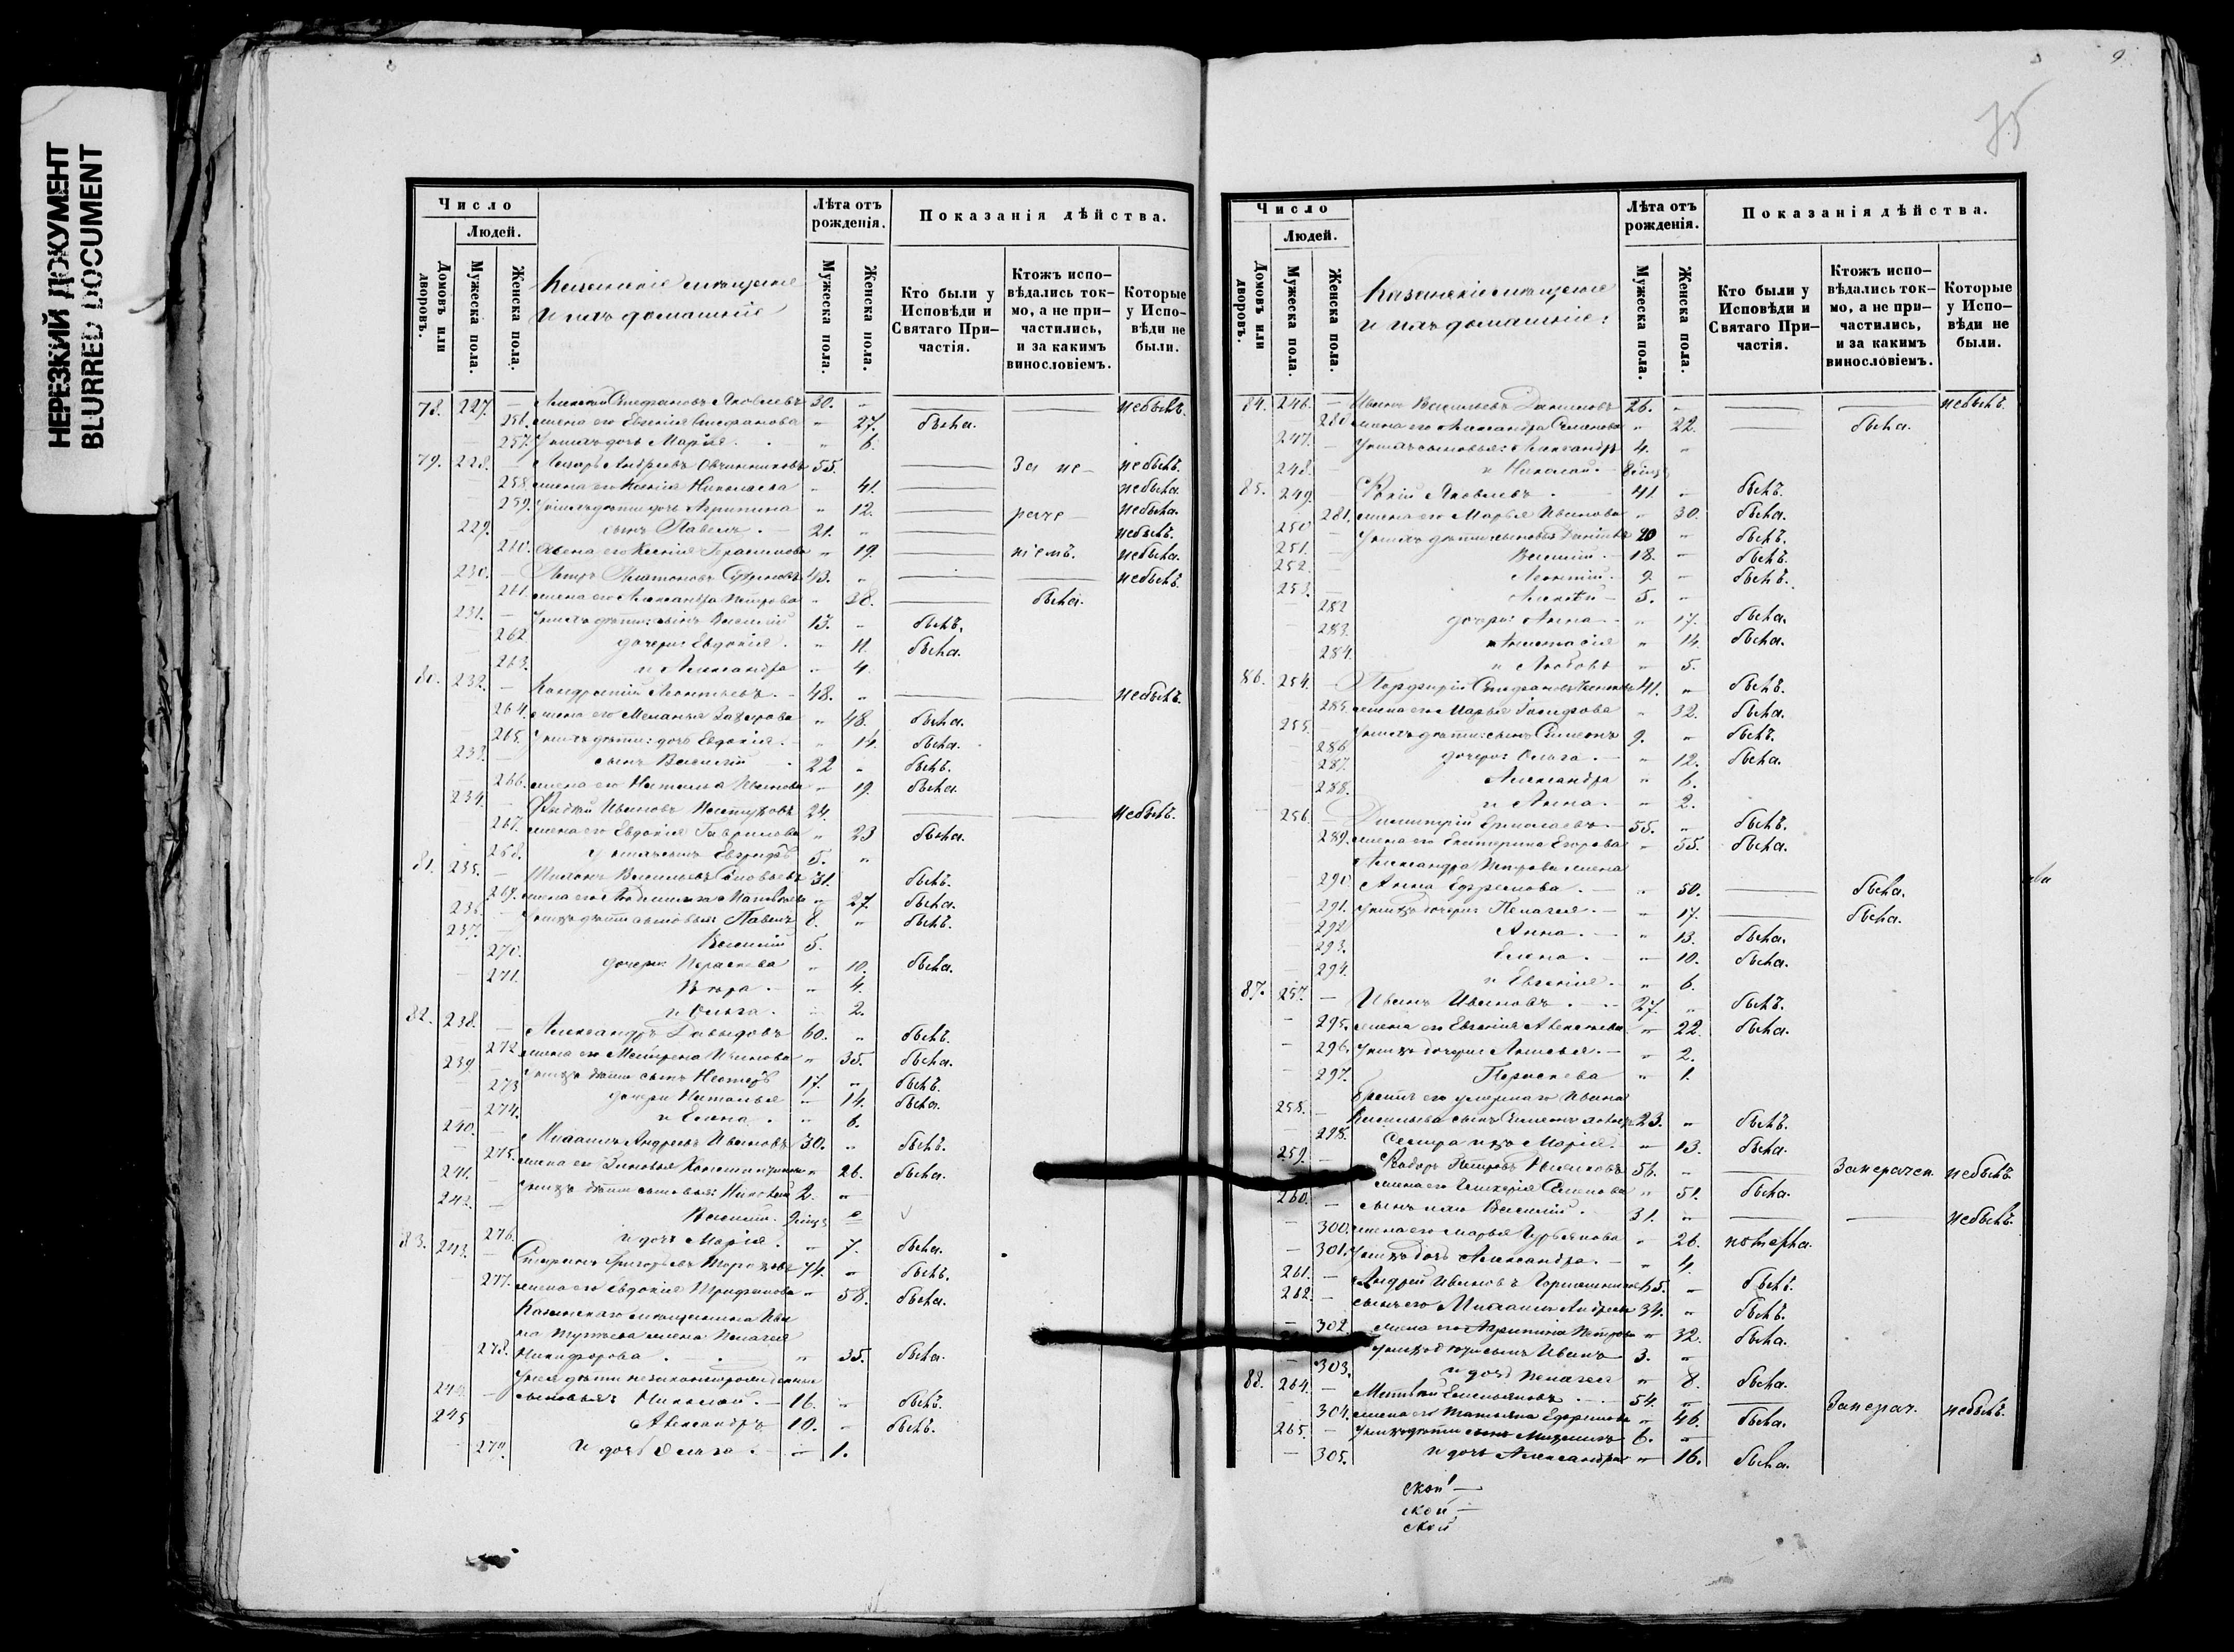 НЕРЕЗКИЙ ДОКУМЕНТ
BLURRED DOCUMENT
Число
Людей.
Домовъ или дворовъ.
Мужеска пола.
Женска пола.
Казанскіе мещане
и ихъ домашніе
Лѣта отъ рожденія.
Мужеска пола.
Женска пола.
Показанія дѣйства.
Кто были у Исповѣди и Святаго Причастія.
Ктожъ исповѣдались токмо, а не причастились, и за какимъ винословіемъ.
Которые у Исповѣди не были.
78. 227. — Алексѣй Стефановъ Яковлевъ 30. „ небылъ.
256. жена его Евгенія Стефанова „ 27. была.
257. У нихъ дочь Марія „ 6.
79. 228. — Лазарь Андреевъ Овчинниковъ 55. За не- небылъ.
258. жена его Ксенія Николаева „ 41. небыла
259. У нихъ дѣти: дочь Агрипина „ 12. раче- небыла.
229. сынъ Павелъ 21. „ небылъ.
260. жена его Ксенія Герасимова „ 19. ніемъ. небыла.
230. — Петръ Платоновъ 43. „ небылъ.
261. жена его Александра Петрова „ 38. была.
231. — У нихъ дѣти: сынъ Василій 13. „ былъ.
262 дочери: Евдокія „ 11. была.
263. и Александра „ 4.
80. 232. — Кондратій Леонтьевъ 48. „ небылъ.
264. жена его Меланья Захарова „ 48. была.
265. У нихъ дѣти: дочь Евдокія „ 14. была.
233. сынъ Василій 22 „ былъ.
266. жена его Наталья Иванова „ 19. была.
234. Иванов 24. небылъ.
267. жена его Евдокія Гаврилова „ 23 была.
268. У нихъ сынъ 5. „
81. 235. Васильевъ Соловьевъ 31. былъ.
269. жена его „ 27. была.
236. — У нихъ дѣти сыновья: Павелъ 8. „ былъ.
237. — Василій 5.
270. дочери: Параскева „ 10. была.
271. Вѣра „ 4.
и Ольга „ 2.
82. 238. — Александръ Давыдовъ 60. „ былъ.
272 жена его Матрена Иванова „ 35. была.
239. У нихъ дѣти: сынъ Несторъ 17. „ былъ.
273 дочери Наталья „ 14. была.
274. и Елена „ 6.
240. — Михаилъ Андреевъ Ивановъ 30. „ былъ.
275. жена его Зиновья Константинова „ 26. была.
241. — У нихъ дѣти сыновья: Николай 2. „
242. — Василій
276. и дочь Марія „ 7. была.
83. 243. — Григорьевъ 74. „ былъ.
277. жена его Евдокія Трифонова „ 58. была.
Казанскаго мещанина Ива
на жена Пелагея
278. Никифорова „ 35. была.
У нея дѣти незаконнорожденные
244. — сыновья: Николай 16. „ былъ.
245 Александръ 10. „ былъ.
279. и дочь Ольга „ 1.
9
75
Число
Людей.
Домовъ или дворовъ.
Мужеска пола.
Женска пола.
Казанскіе мещане
и ихъ домашніе:
Лѣта отъ рожденія.
Мужеска пола.
Женска пола.
Показанія дѣйства.
Кто были у Исповѣди и Святаго Причастія.
Ктожъ исповѣдались токмо, а не причастились, и за какимъ винословіемъ.
Которые у Исповѣди не были.
84. 246. — Иванъ Васильевъ Даниловъ 26. „ небылъ.
280 жена его Александра Семенова „ 22. была.
247. — У нихъ сыновья: Александръ 4. „
248. и Николай
85. 249. — Яковлевъ 41. „ былъ.
281. жена его Марья Иванова „ 30. была.
250 У нихъ дѣти: сыновья 20 „ былъ.
251. Василій 18. „ былъ.
252. Леонтій 9 „ былъ.
253. Алексѣй 5. „
282 дочери: Анна „ 17. была.
283. Анастасія „ 14. была.
284. и Любовь „ 5.
86. 254. — Порфирій Стефановъ 41. „ былъ.
285. жена его Марья „ 32. была.
255. — У нихъ дѣти: сынъ Симеонъ 9. „ былъ.
286 дочери: Ольга „ 12. была.
287. Александра „ 6.
288. и Анна „ 2.
256. Димитрій Ермолаевъ 55. „ былъ.
289. жена его Екатерина Егорова „ 55. была.
Александра Петрова жена
290 Анна Ефремова „ 50. была.
291. У нихъ дочери: Пелагея „ 17. была.
292 Анна „ 13. была.
293. Елена „ 10. была.
294. и Евгенія „ 6.
87. 257. — Иванъ Ивановъ 27. „ былъ.
295. жена его Евгенія Алексѣева „ 22. была.
296. У нихъ дочери: „ 2.
297. Параскева „ 1.
Братъ его умершаго Ивана
258. — Васильева сынъ Симеонъ 23. „ былъ.
298. Сестра ихъ Марія „ 13. была.
259. — Ѳедоръ Петровъ 56. „ Занерачен. небылъ.
жена его Семенова „ 51. была.
260. — сынъ ихъ Василій 31. „ небылъ.
300. жена его Марья „ 26.
301. У нихъ дочь Александра „ 4.
261. — Андрей Ивановъ „ былъ.
262. — сынъ его Михаилъ Андреевъ 34. „ былъ.
302. жена его Агрипина Петрова „ 32. была.
У нихъ дѣти: сынъ Иванъ 3. „
303. и дочь Пелагея „ 8. была.
88. 264. — Матвѣй Емельяновъ 54. „ Занерач. небылъ.
304. жена его Татьяна Ефимова „ 46. была.
265. — У нихъ дѣти сынъ Михаилъ 6. „
305. и дочь Александра „ 16. была.
ской —
ской —
ской